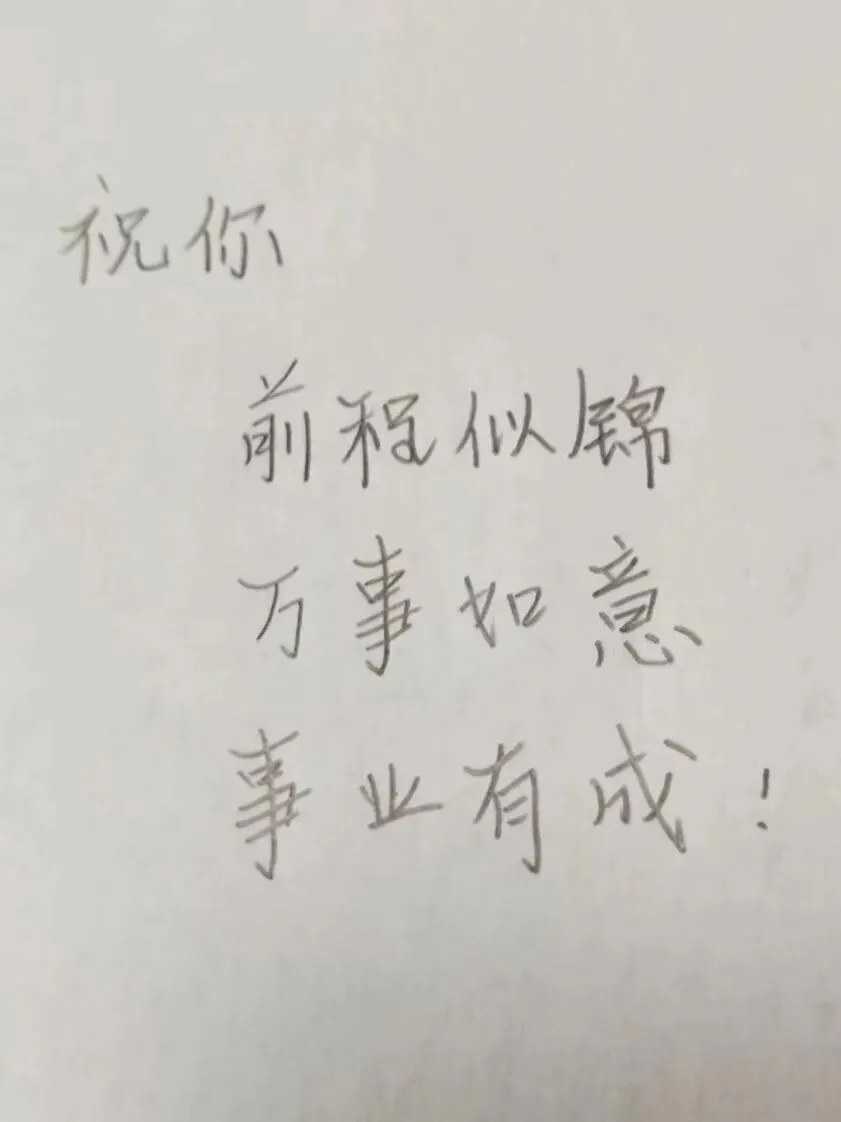 祝你
前程似锦
万事如意
事业有成！